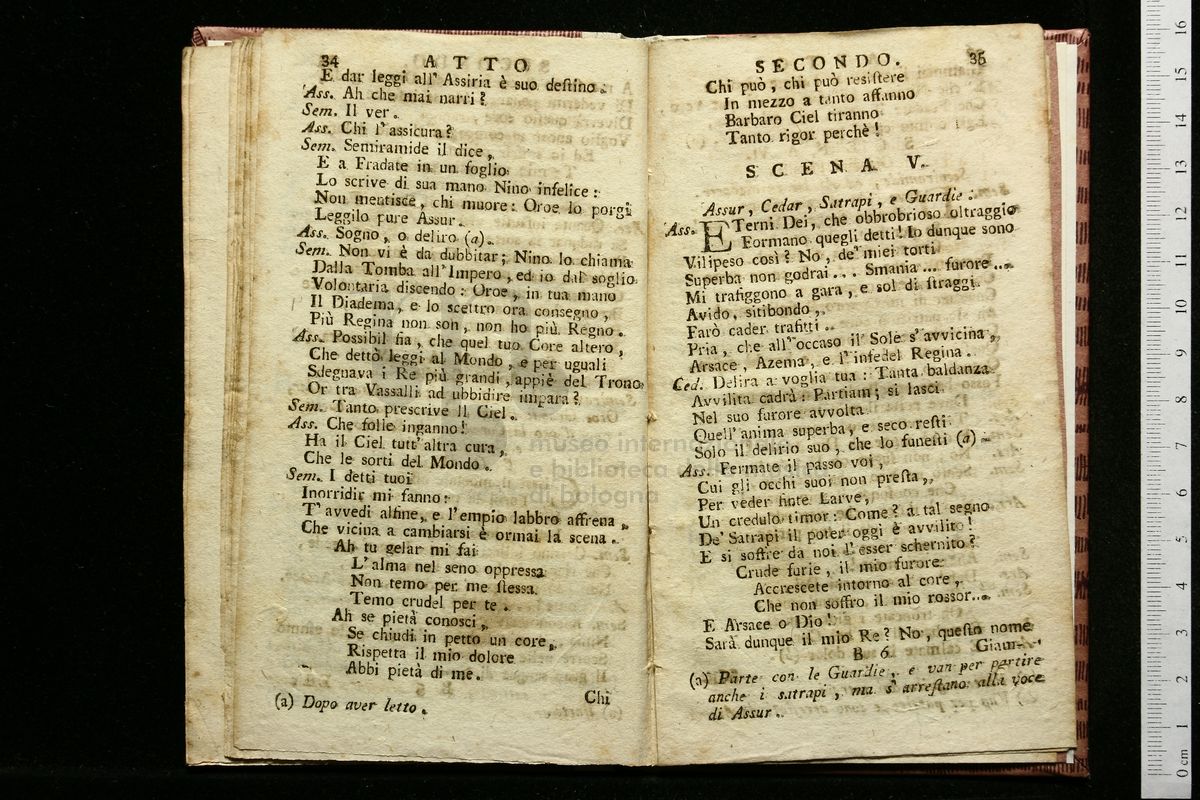 34 ATTO
E dar leggi all' Assiria è suo destino.
Ass. Ah che mai narri?
Sem. Il ver.
Ass. Chi l'assicura?
Sem. Semiramide il dice,
E a Fradate in un foglio
Lo scrive di sua mano Nino infelice:
Non mentisce, chi muore: Oroe lo porgi
Leggilo pure Assur.
Ass. Sogno, o deliro (a).
Sem. Non vi è da dubbitar; Nino lo chiama
Dalla Tomba all'Impero, ed io dal soglio
Volontaria discendo: Oroe, in tua mano
Il Diadema, e lo scettro ora consegno,
Più Regina non son, non ho più Regno.
Ass. Possibil fia, che quel tuo Core altero,
Che dettò leggi al Mondo, e per uguali
Sdegnava i Re più grandi, appiè del Trono
Or tra Vassalli ad ubbidire impara?
Sem. Tanto prescrive Il Ciel.
Ass. Che folle inganno!
Ha il Ciel tutt'altra cura,
Che le sorti del Mondo.
Sem. I detti tuoi
Inorridir mi fanno:
T'avvedi alfine, e l'empio labbro affrena,
Che vicina a cambiarsi è ormai la scena.
Ah tu gelar mi fai
L'alma nel seno oppressa
Non temo per me stessa
Temo crudel per te.
Ah se pietà conosci,
Se chiudi in petto un core,
Rispetta il mio dolore
Abbi pietà di me.
Chi
(a) Dopo aver letto.
SECONDO. 35
Chi può, chi può resistere
In mezzo a tanto affanno
Barbaro Ciel tiranno
Tanto rigor perchè!
SCENA V.
Assur, Cedar, Satrapi, e Guardie.
Ass. ETerni Dei, che obbrobrioso oltraggio
Formano quegli detti! Io dunque sono
Vilipeso così? No, de' miei torti
Superba non godrai... Smania... furore...
Mi trafiggono a gara, e sol di straggi
Avido, sitibondo,
Farò cader trafitti..
Pria, che all'occaso il Sole s'avvicina,
Arsace, Azema, e l'infedel Regina.
Ced. Delira a voglia tua: Tanta baldanza
Avvilita cadrà: Partiam; si lasci
Nel suo furore avvolta
Quell'anima superba, e seco resti
Solo il delirio suo, che lo funesti (a)
Ass. Fermate il passo voi,
Cui gli occhi suoi non presta,
Per veder finte Larve,
Un credulo timor: Come? a tal segno
De' Satrapi il poter oggi è avvilito!
E si soffre da noi l'esser schernito?
Crude furie, il mio furore
Accrescete intorno al core,
Che non soffro il mio rossor...
E Arsace o Dio!
Sarà dunque il mio Re? No, questo nome
B 6 Giam-
(a) Parte con le Guardie, e van per partire
anche i satrapi, ma s'arrestano alla voce
di Assur.
museo internazionale
e biblioteca
di bologna